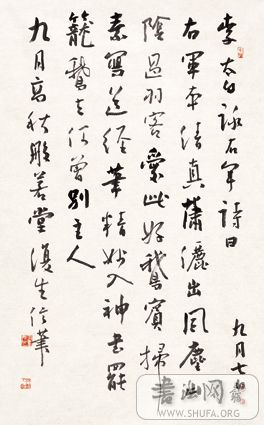 李太白詠右軍詩曰
右軍本清真瀟灑出風塵山
陰過羽客愛此好鵝賓掃
素寫道經筆精妙入神書罷
籠鵝去何曾別主人
九月高秋堂復生信筆
九月七
WWW.SHUFA.ORG